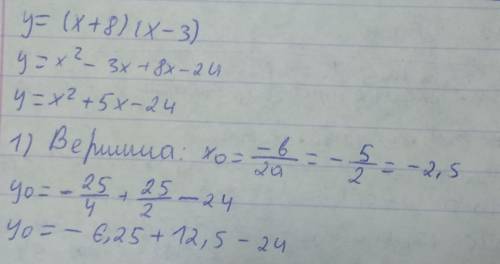 y = (x+8)(x-3)
y = x² - 3x + 8x - 24
y = x² + 5x - 24
1) Вершина: x₀ = -b/2a = -5/2 = -2,5
y₀ = -25/4 + 25/2 - 24
y₀ = -6,25 + 12,5 - 24